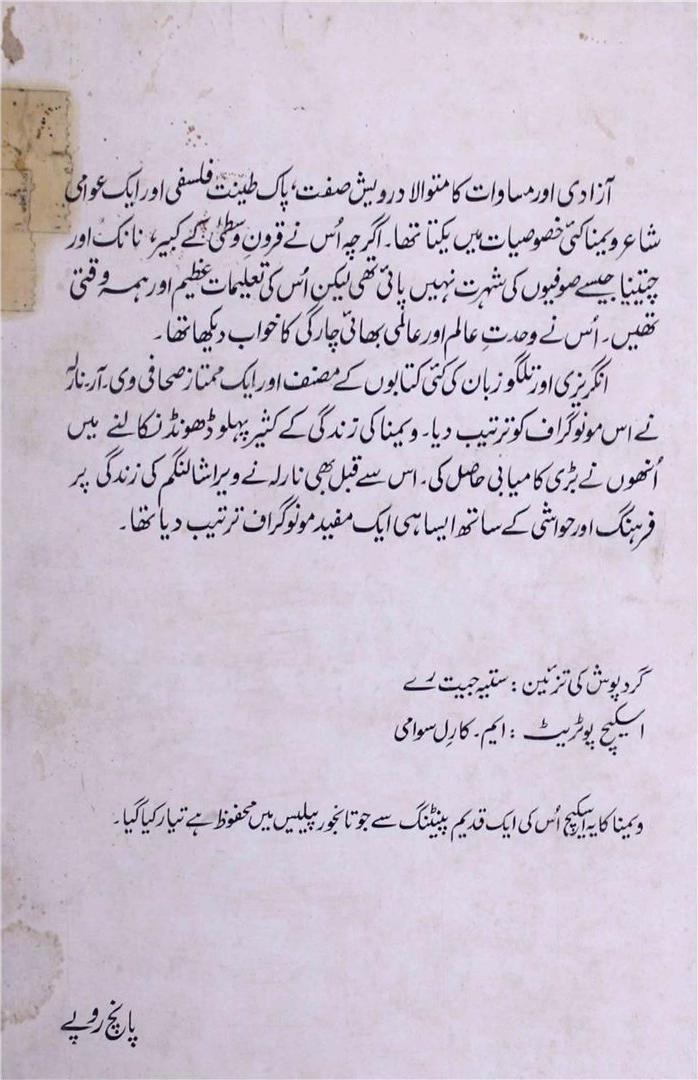 آزادی اور مساوات کا متوالا درویش صفت، پاک طینت فلسفی اور ایک عوامی
شاعر ویمنا کئی خصوصیات میں یکتا تھا۔ اگرچہ اُس نے قرونِ وسطیٰ کے کبیر، نانک اور
چیتنیا جیسے صوفیوں کی شہرت نہیں پائی تھی لیکن اُس کی تعلیمات عظیم اور ہمہ وقتی
تھیں۔ اُس نے وحدتِ عالم اور عالمی بھائی چارگی کا خواب دیکھا تھا۔
انگریزی اور تلگو زبان کی کئی کتابوں کے مصنف اور ایک ممتاز صحافی وی۔آر۔نارلہ
نے اس مونوگراف کو ترتیب دیا۔ ویمنا کی زندگی کے کثیر پہلو ڈھونڈ نکالنے میں
اُنھوں نے بڑی کامیابی حاصل کی۔ اس سے قبل بھی نارلہ نے ویراشالنگم کی زندگی پر
فرہنگ اور حواشی کے ساتھ ایسا ہی ایک مفید مونوگراف ترتیب دیا تھا۔
گردپوش کی تزئین : ستیہ جیت رے
اسکیچ پوٹریٹ : ایم۔ کارل سوامی
ویمنا کا یہ اسکیچ اُس کی ایک قدیم پینٹنگ سے جو تانجور پیلیس میں محفوظ ہے تیار کیا گیا۔
پانچ روپے